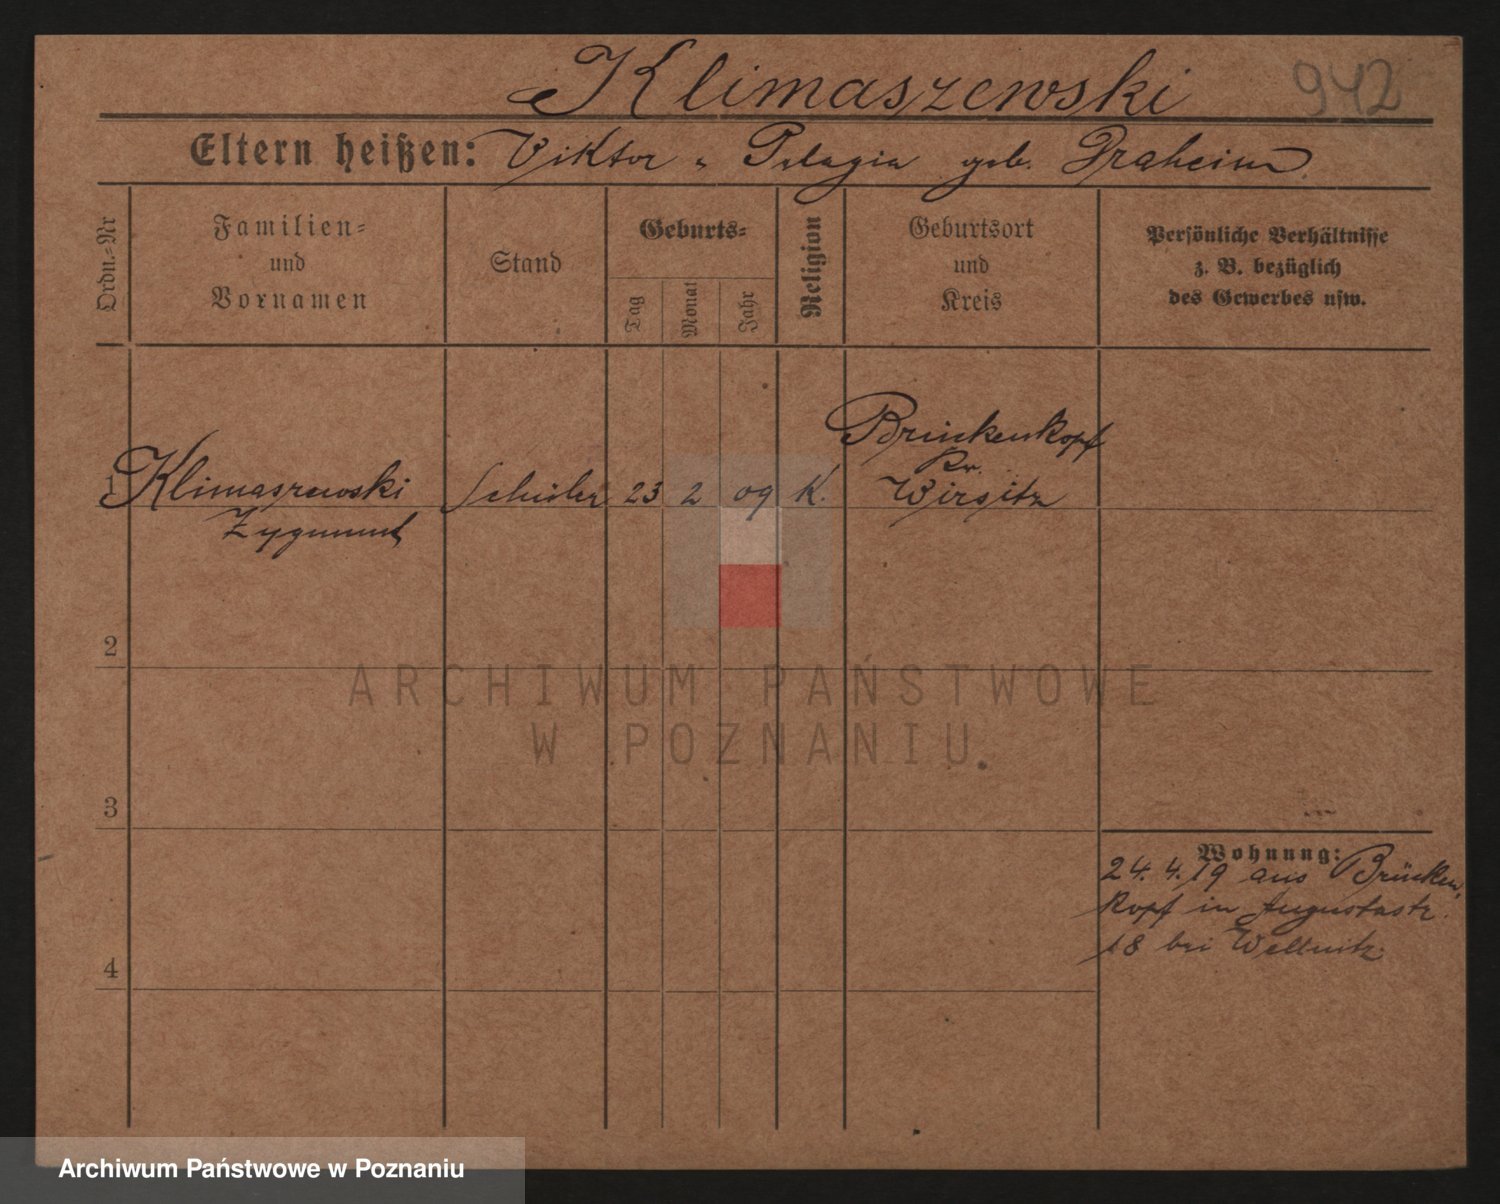 Klimaszewski 942
Eltern heißen: Viktor u Pelagia geb. Draheim
Ordn.-Nr
Familien-
und
Vornamen
Stand
Geburts-
Tag
Monat
Jahr
Religion
Geburtsort
und
Kreis
Persönliche Verhältnisse
z. B. bezüglich
des Gewerbes usw.
1 Klimaszewski Schüler 23 2 09 K. Brückenkopf
Zygmunt
Kr.
Wirsitz
2
3
4
Wohnung:
24. 4. 19 aus Brücken,
kopf in Augustastr.
18 bei Wellnitz
ARCHIWUM PAŃSTWOWE
W POZNANIU
Archiwum Państwowe w Poznaniu